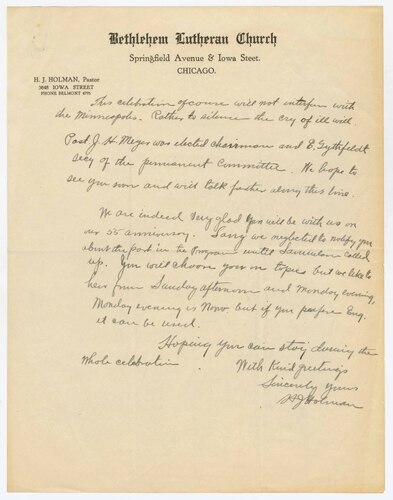 Bethlehem Lutheran Church
Springfield Avenue & Iowa Steet.
CHICAGO.
H. J. HOLMAN, Pastor
3848 IOWA STREET
PHONE BELMONT 4795
This celebration of course will not interfere with
the Minneapolis. Rather to silence the cry of ill will.
Past J. H. Meyer was elected chairman and E.
secy of the permanent Committee. We hope to
see you soon and will talk further along this line.
We are indeed very glad you will be with us on
our 55 anniversy. Sorry we neglected to notify you
about the part in the Program until called
up. You will choose your own topic but we like to
hear from Sunday afternoon and Monday evening,
Monday evening is Norw. but if you prefere Eng.
it can be used.
Hoping you can stay during the
whole celebration
With Kind greetings
Sincerely yours
H J Holman